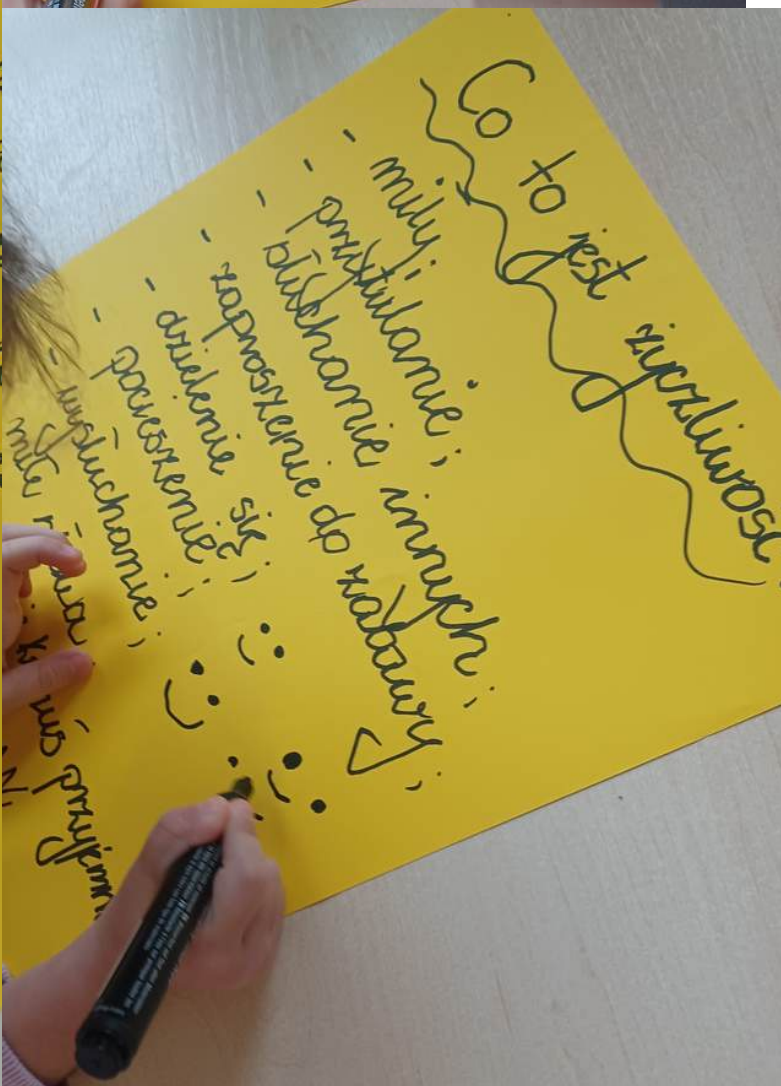 Co to jest życzliwość
- miły;
- przytulanie;
- słuchanie innych;
- zaproszenie do zabawy;
- dzielenie się;
- pocieszenie;
- wysłuchanie;
miłe